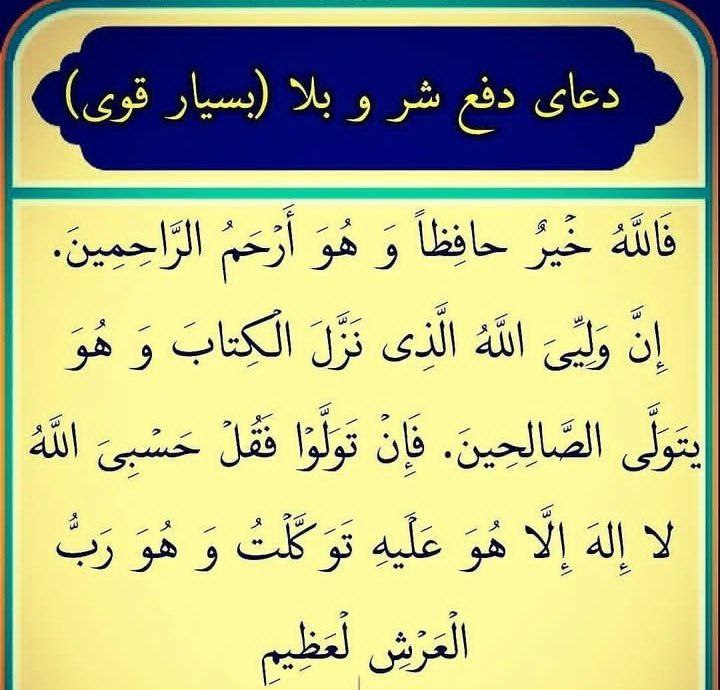 دعای دفع شر و بلا (بسیار قوی)
فَاللَّهُ خَیْرٌ حافِظاً وَ هُوَ أَرْحَمُ الرَّاحِمِینَ.
إِنَّ وَلِیِّیَ اللَّهُ الَّذِی نَزَّلَ الْکِتابَ وَ هُوَ
یَتَوَلَّی الصَّالِحِینَ. فَإِنْ تَوَلَّوْا فَقُلْ حَسْبِیَ اللَّهُ
لا إِلهَ إِلَّا هُوَ عَلَیْهِ تَوَکَّلْتُ وَ هُوَ رَبُّ
الْعَرْشِ لْعَظِیمِ